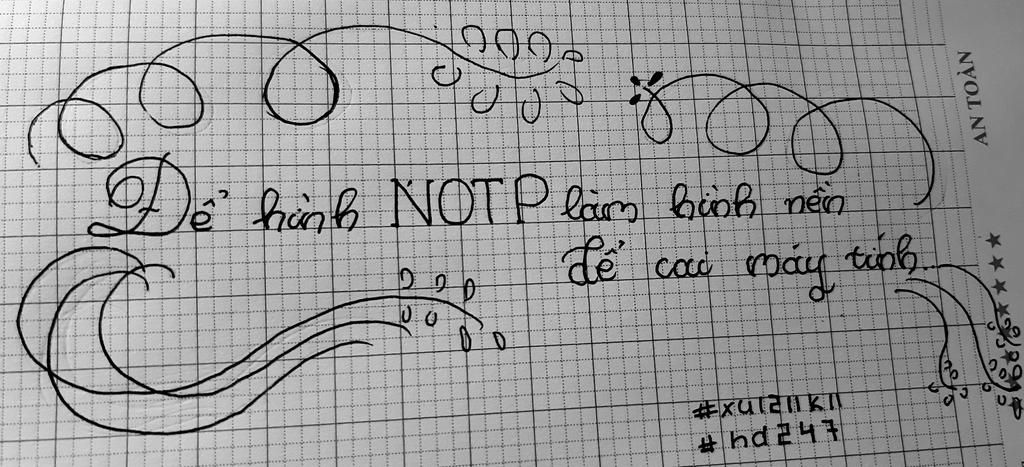 Để hình NOTP làm hình nền
để cad máy tính
#xu1211k11
#hd247
AN TOÀN